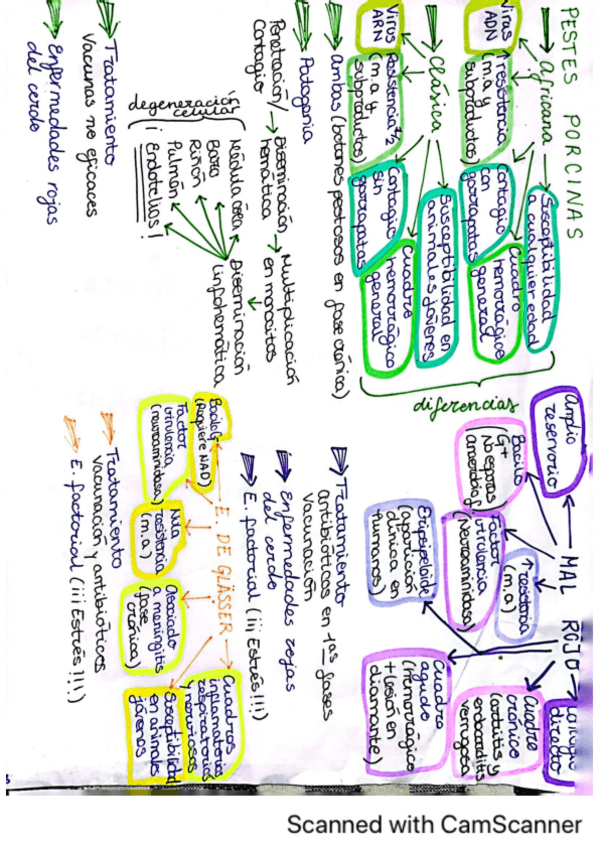 PESTES PORCINAS
Africana
Susceptibilidad
a cualquier edad
Virus
ADN
↑ resistencia
(m.a y
subproductos)
Contagio
con
garrapatas
Cuadro
hemorrágico
general
Clásica
Susceptibilidad en
animales jóvenes
Virus
ARN
Resistencia +/2
(m.a y
subproductos)
Contagio
sin
garrapatas
Cuadro
hemorrágico
general
diferencias
Ambas (botones pestosos en fase crónica)
Patogenia
Penetración/
Contagio
Diseminación
hemática
Multiplicación
en monocitos
Diseminación
linfohemática
Médula ósea
Bazo
Riñón
Pulmón
¡Endotelios!
degeneración
celular
Tratamiento
Vacunas no eficaces
Enfermedades rojas
del cerdo
MAL ROJO
Amplio
reservorio
Contagio
directo
Bacilo
(G+
No esporas
anaerobio f
Factor
virulencia
(Neuroaminidasa)
↑ resistencia
(m,a)
Cuadro
crónico
(artritis y
endocarditis
verrugosa
Erisipeloide
(aparición
clínica en
humanos)
Cuadro
agudo
(Hemorrágico
+ lesión en
diamante)
Tratamiento
antibióticos en +as fases
vacunación
Enfermedades rojas
del cerdo
E. factorial (¡¡¡ Estrés!!!)
E. DE GLÄSSER
Bacilo G-
(Requiere NAD)
Factor
virulencia
(neuroaminidasa)
Nula
resistencia
(m.a)
Asociado
a meningitis
(fase
crónica)
Cuadros
inflamatorios
respiratorios
y nerviosos
Susceptibilidad
en animales
jóvenes
Tratamiento
vacunación y antibióticos
E. factorial (¡¡¡ Estrés!!!)
Scanned with CamScanner